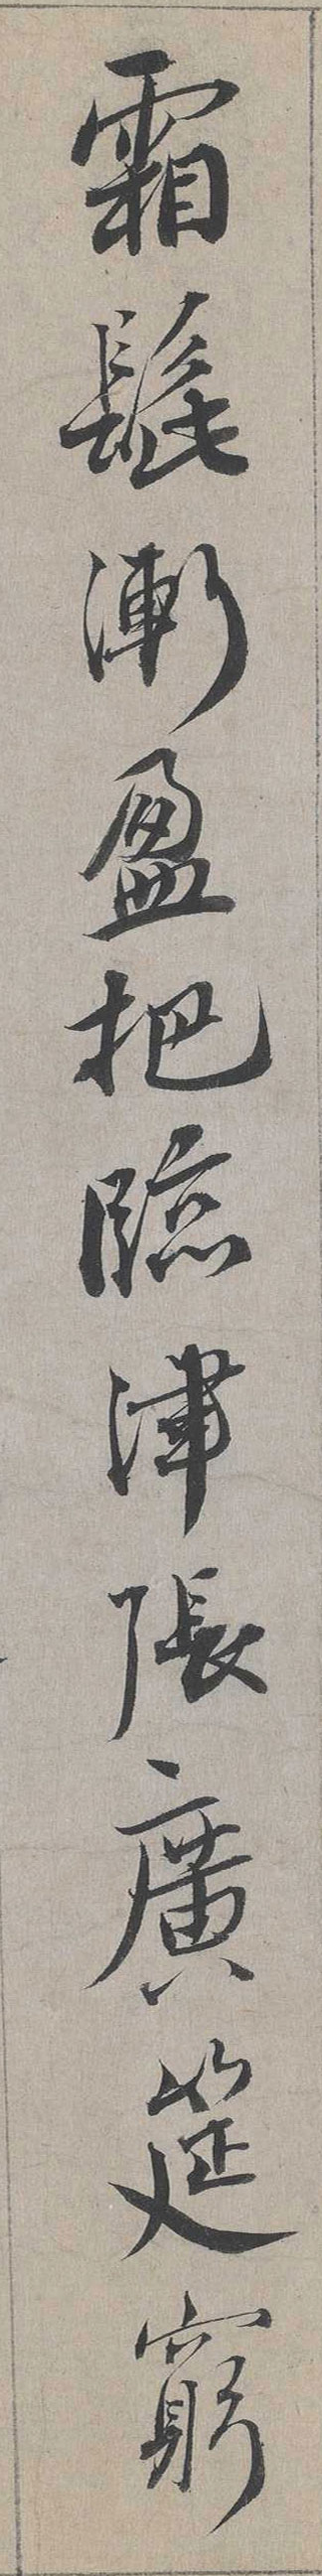 霜髭漸盈把臨津張廣筵窮